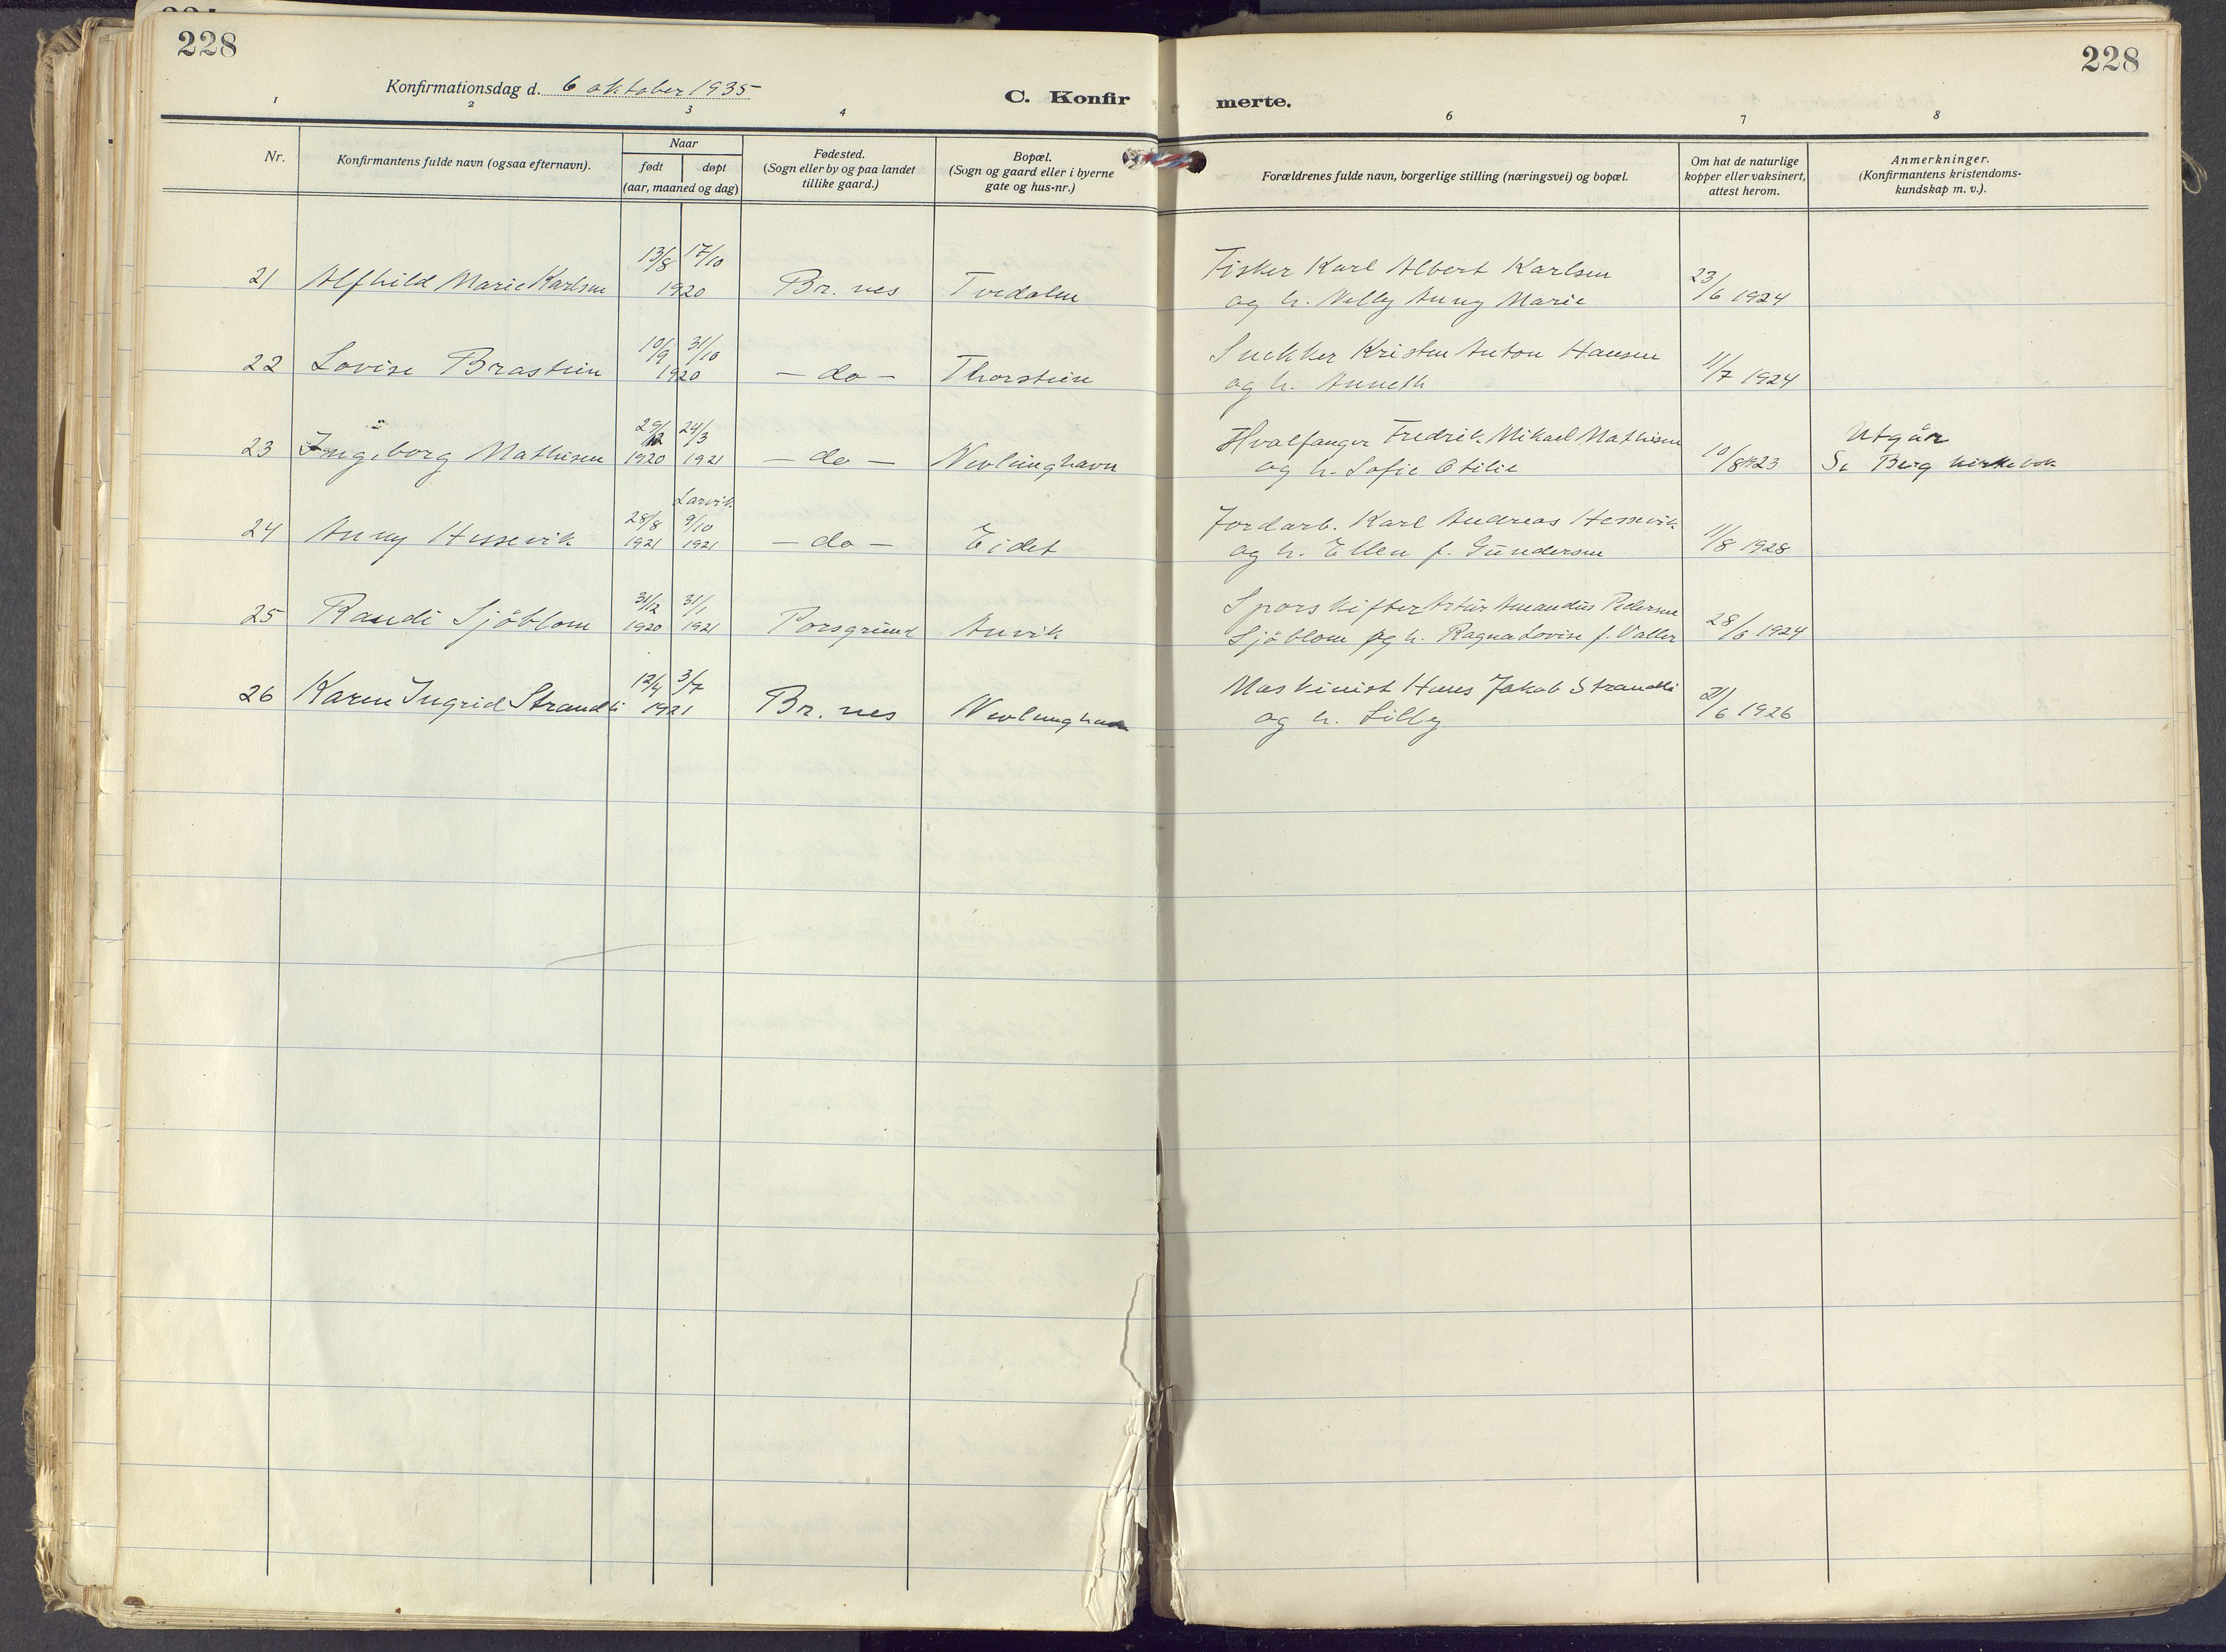 228
228
Konfirmationsdag d. 6 oktober 1935
C. Konfirmerte.
1 2 3 4 6 7 8
Nr.
Konfirmantens fulde navn (ogsaa efternavn).
Naar
født døpt
(aar, maaned og dag)
Fødested.
(Sogn eller by og paa landet
tillike gaard.)
Bopæl.
(Sogn og gaard eller i byerne
gate og hus-nr.)
Forældrenes fulde navn, borgerlige stilling (næringsvei) og bopæl.
Om hat de naturlige
kopper eller vaksinert,
attest herom.
Anmerkninger.
(Konfirmantens kristendoms-
kundskap m. v.).
13/8 17/10
Fisker Karl Albert Karlsen
21 Alfhild Marie Karlsen 1920 Br. nes Tvedalen
og h. Nelly Anny Marie 23/6 1924
10/9 31/10
Snekker Kristen Anton Hansen
22 Lovise Brastein 1920 — do — Thorstein
og h. Anneth 11/7 1924
29/12 24/3
Hvalfanger Fredrik Mikael Mathisen
Utgår
23 Ingeborg Mathisen 1920 1921 — do — Nevlunghavn
og h. Sofie Otilie 10/8 1923
Se Berg kirkebok
Larvik
28/8 9/10
Jordarb. Karl Andreas Hessevik
24 Anny Hessevik 1921 1921 — do — Eidet
og h. Ellen f. Gundersen 11/8 1928
31/12 31/1
Sporskifter Artur Amandus Pedersen
25 Randi Sjöblom 1920 1921 Porsgrund Anvik
Sjöblom og h. Ragna Lovise f. Valler 28/6 1924
12/4 3/7
Maskinist Hans Jakob Strandli
26 Karen Ingrid Strandli 1921 Br. nes Nevlunghavn
og h. Lilly 21/6 1926